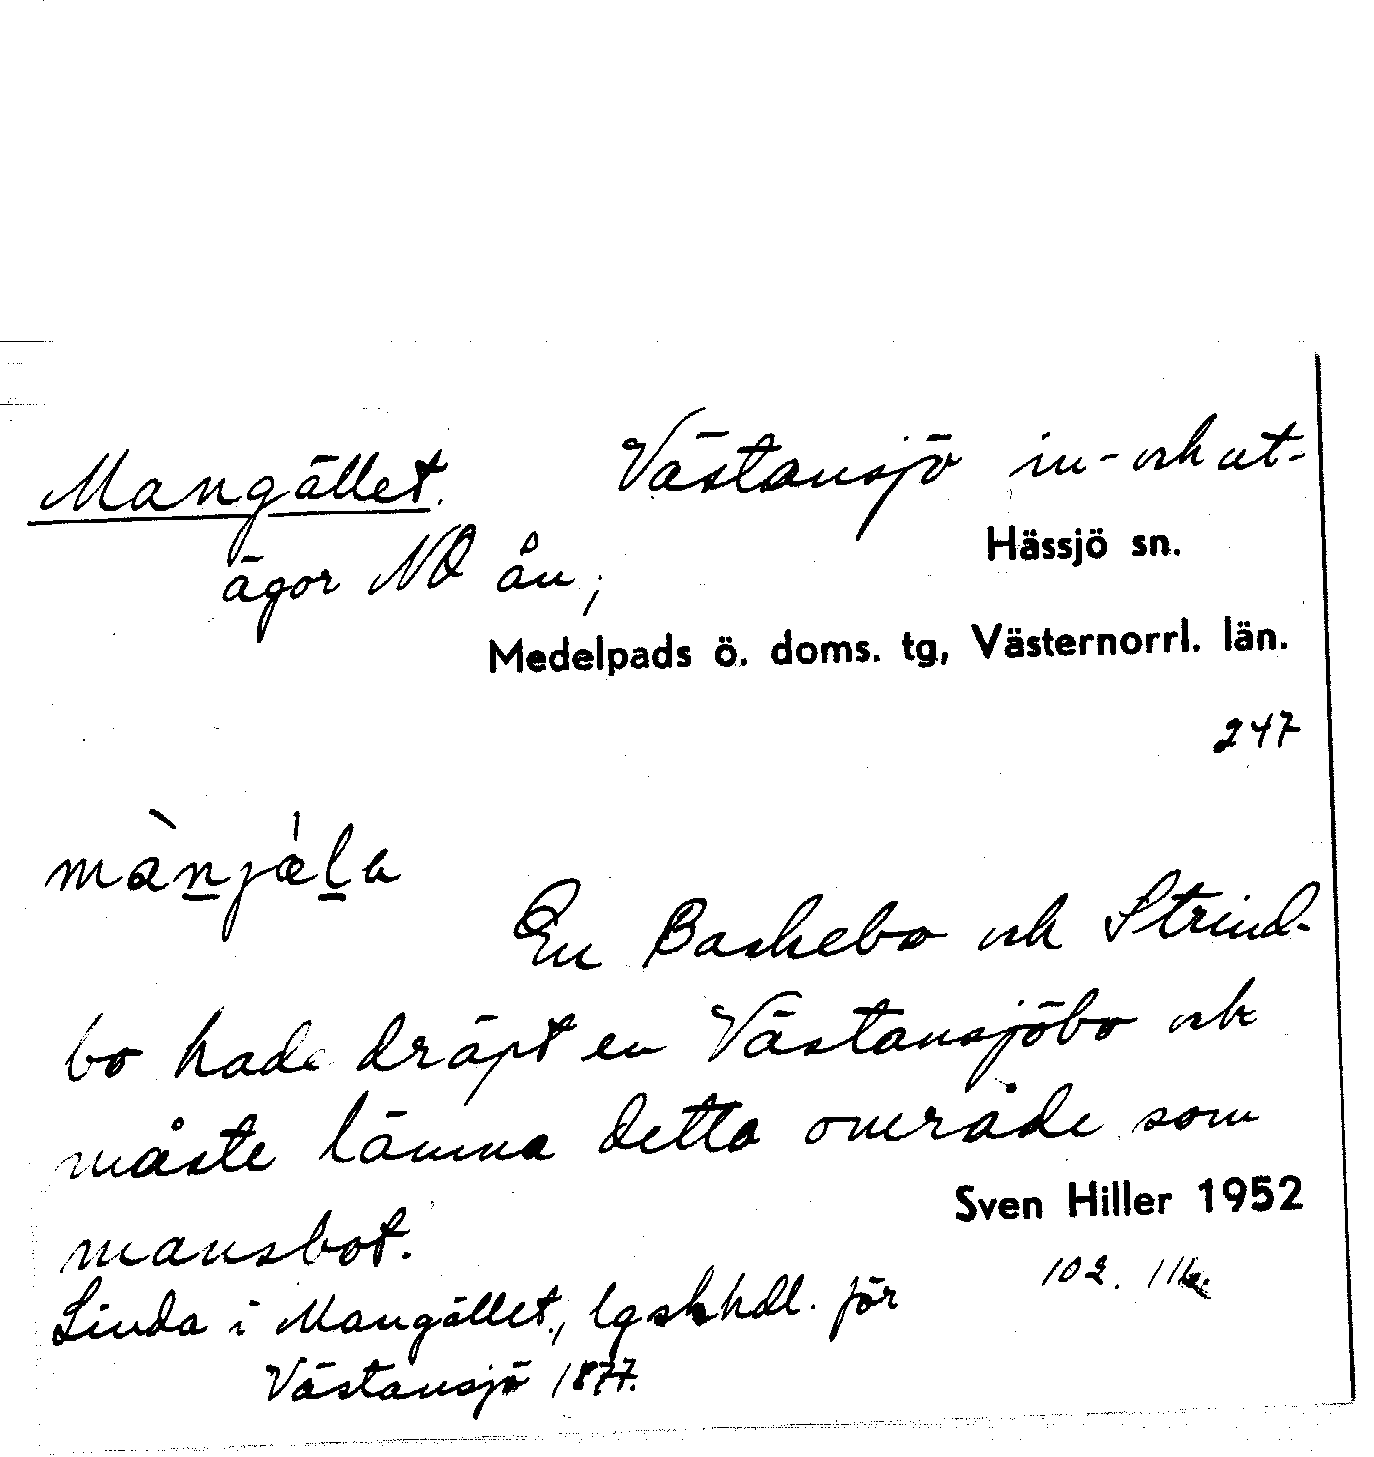 Mangället. Västansjö in- och ut-
Hässjö sn.
ägor NO ån;
Medelpads ö. doms. tg, Västernorrl. län.
247
mànjǽla
En Baskebo och Strind-
bo hade dräpt en Västansjöbo och
måste lämna detta område som
mansbot.
Sven Hiller 1952
102.
Linda i Mangället, lgskhdl. för
Västansjö 1877.